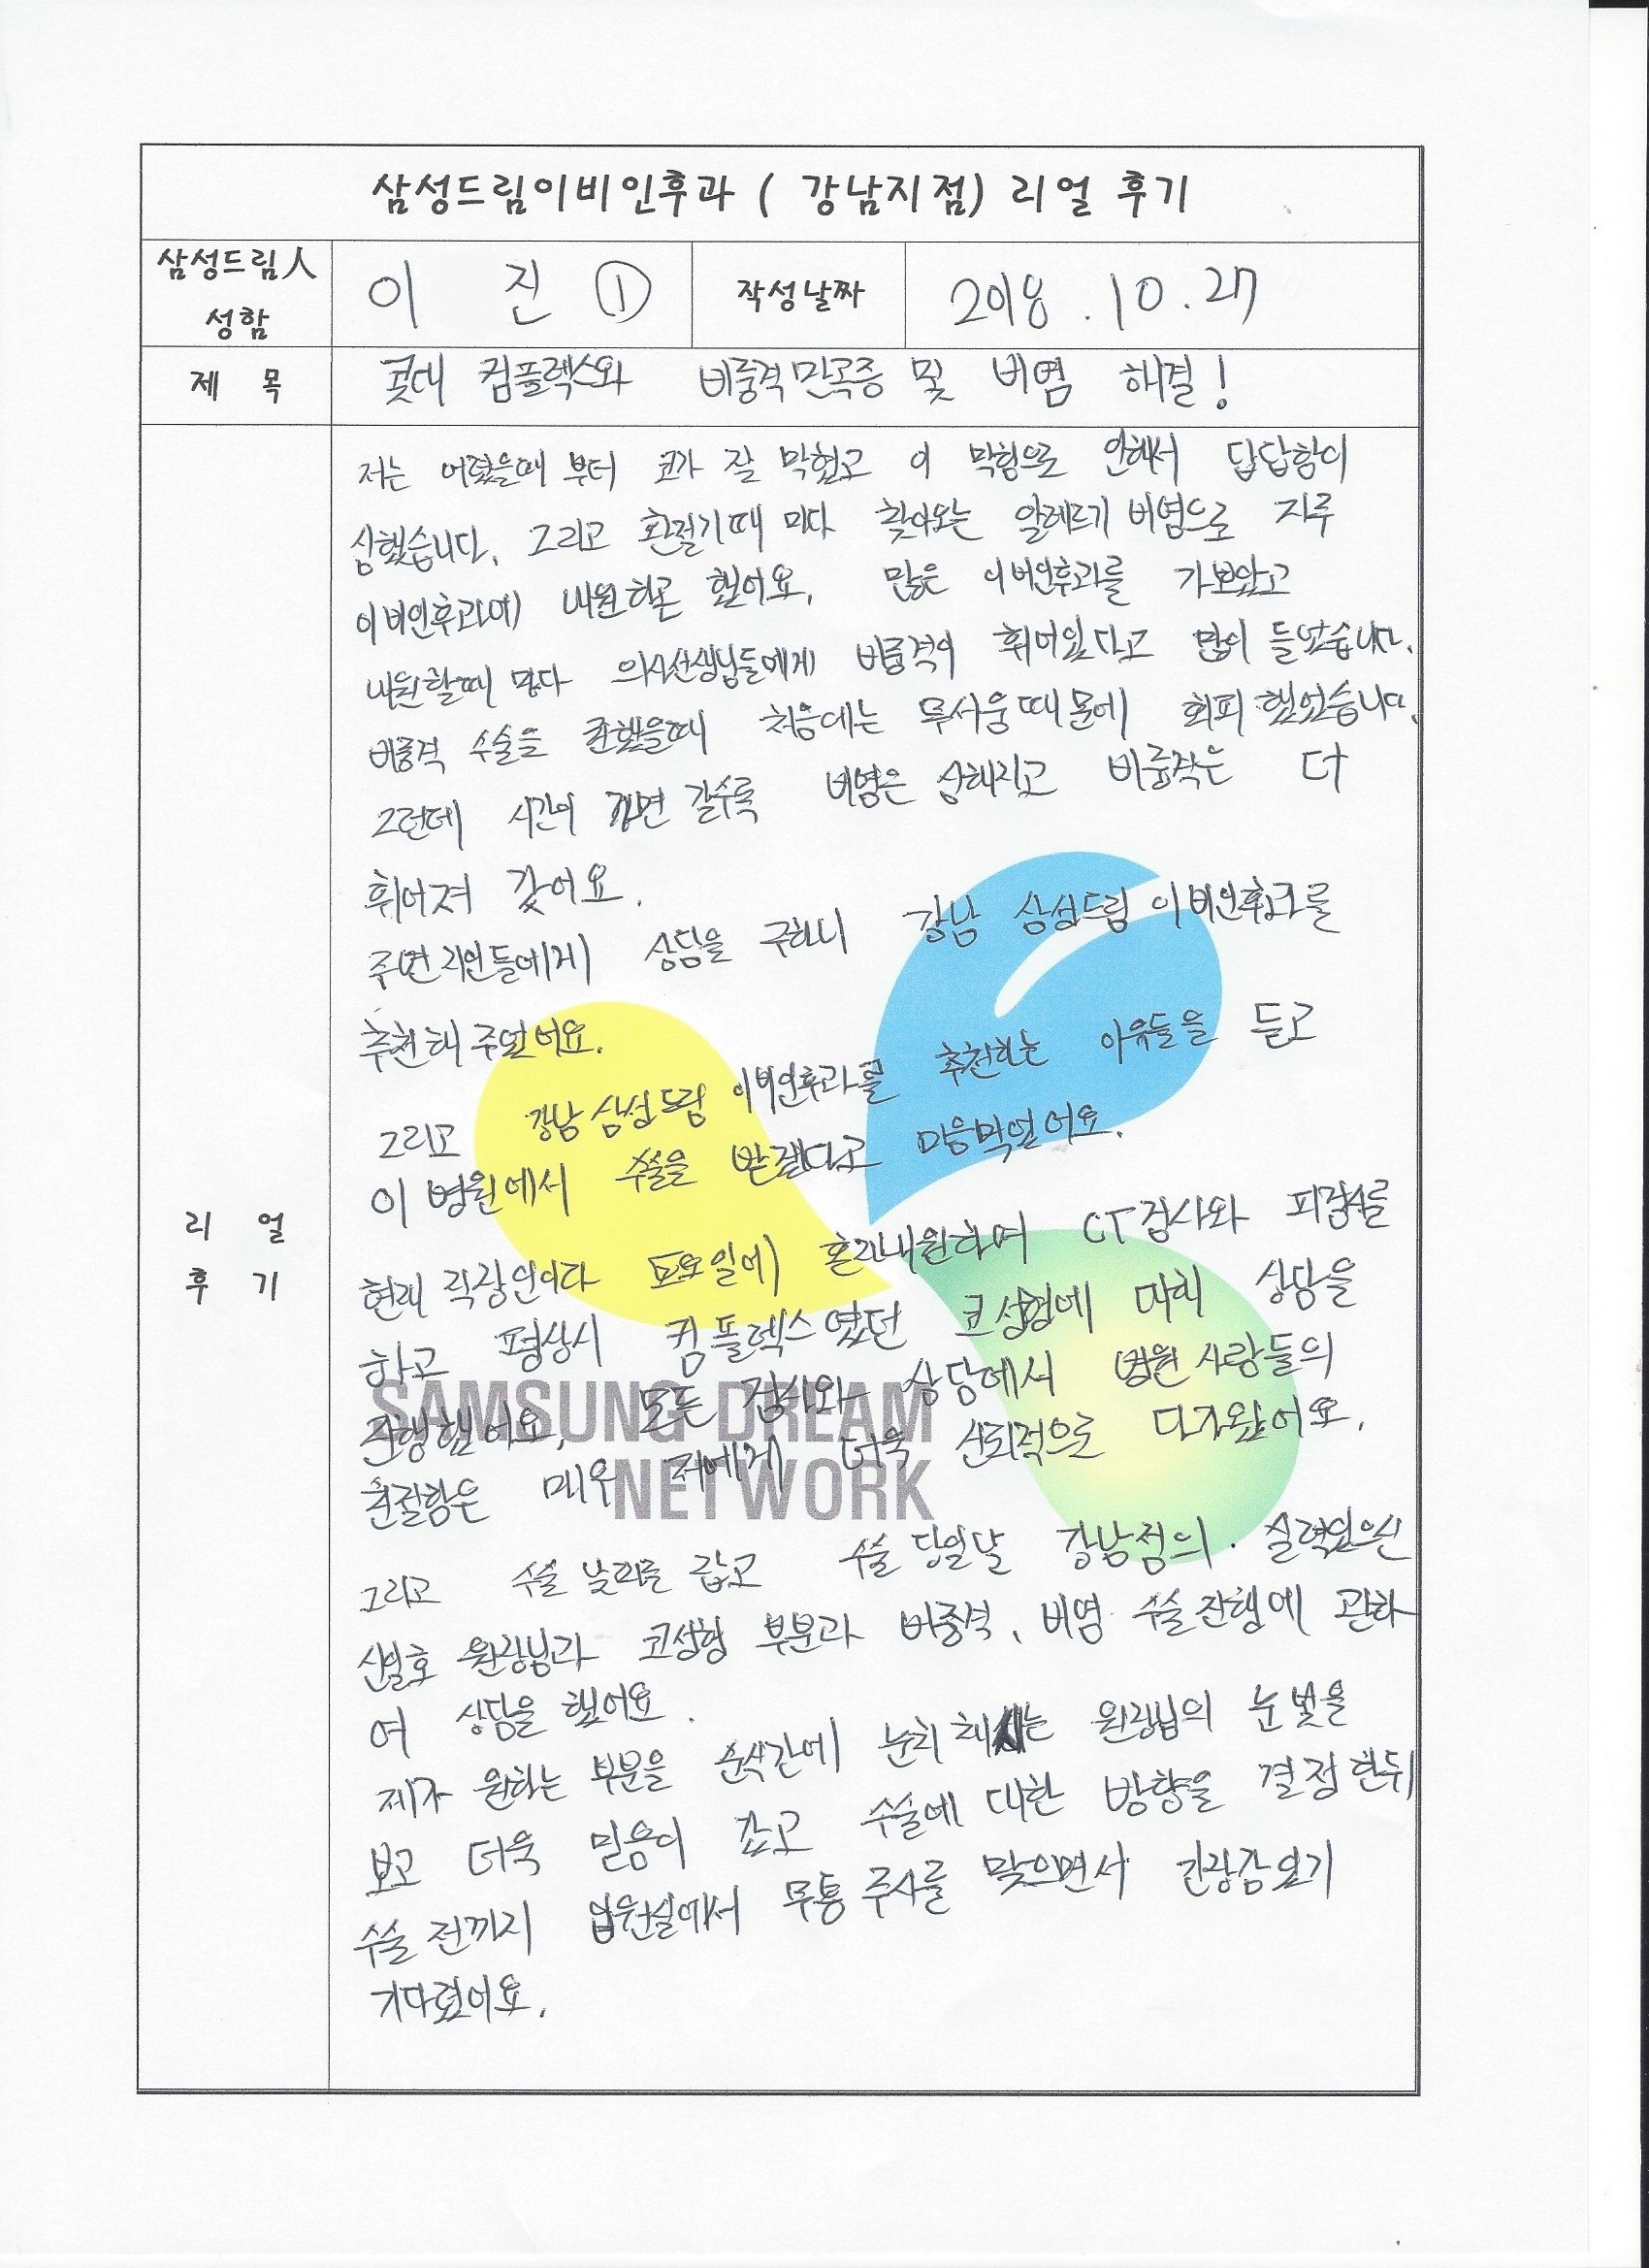 삼성드림이비인후과 ( 강남지점) 리얼 후기
삼성드림人
성함
이 진 ①
작성날짜
2018. 10. 27
제 목
콧대 컴플렉스와 비중격만곡증 및 비염 해결!
리 얼
후 기
저는 어렸을때 부터 코가 잘 막혔고 이 막힘으로 인해서 답답함이
심했습니다. 그리고 환절기때 마다 찾아오는 알레르기 비염으로 자주
이비인후과에 내원하곤 했어요. 많은 이비인후과를 가보았고
내원할때 마다 의사선생님들에게 비중격이 휘어있다고 많이 들었습니다.
비중격 수술을 권했을때 처음에는 무서움때문에 회피했었습니다.
그런데 시간이 가면 갈수록 비염은 심해지고 비중격은 더
휘어져 갔어요.
주변지인들에게 상담을 구하니 강남 삼성드림이비인후과를
추천해 주었어요.
그리고 강남삼성드림 이비인후과를 추천하는 이유들을 듣고
이 병원에서 수술을 받겠다고 마음먹었어요.
현재 직장인이라 토요일에 혼자내원하여 CT검사와 피검사를
하고 평상시 컴플렉스였던 코성형에 대해 상담을
진행했어요. 모든 검사와 상담에서 병원사람들의
친절함은 매우 저에게 더욱 신뢰적으로 다가왔어요.
SAMSUNG DREAM
NETWORK
그리고 수술 날짜를 잡고 수술 당일날 강남점의 실력있으신
신일호 원장님과 코성형 부분과 비중격, 비염 수술진행에 관하
여 상담을 했어요.
제가 원하는 부분을 순식간에 눈치채시는 원장님의 눈빛을
보고 더욱 믿음이 갔고 수술에 대한 방향을 결정한뒤
수술 전까지 입원실에서 무통주사를 맞으면서 긴장감있게
기다렸어요.